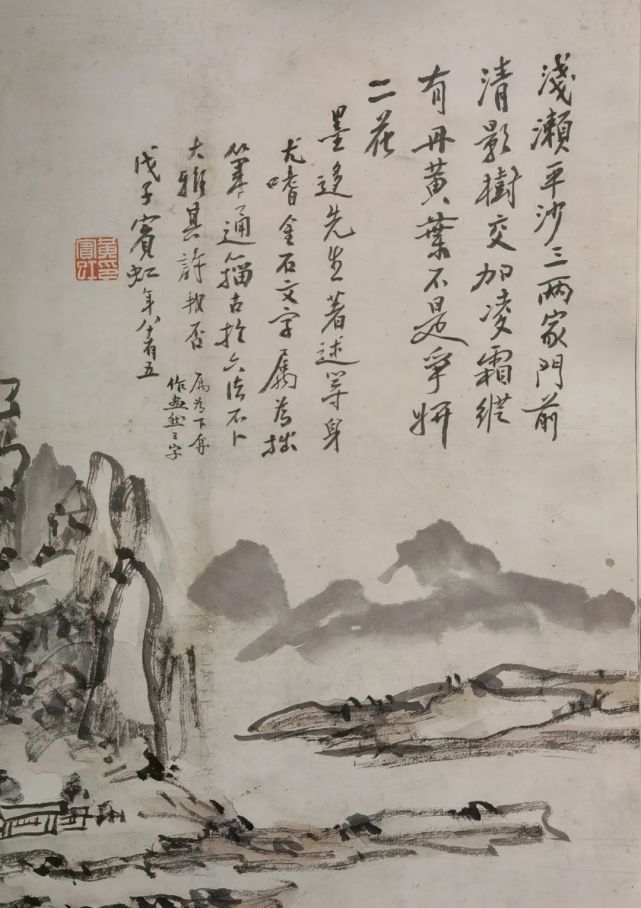 淺瀨平沙三兩家門前
清影樹交加凌霜縱
有丹黃葉不是爭妍
二花
墨迻先生著述等身
尤嗜金石文字屬為拙
筆通籀古於六法不卜
大雅其許我否
屬為下奪
作畫然三字
戊子賓虹年八十有五